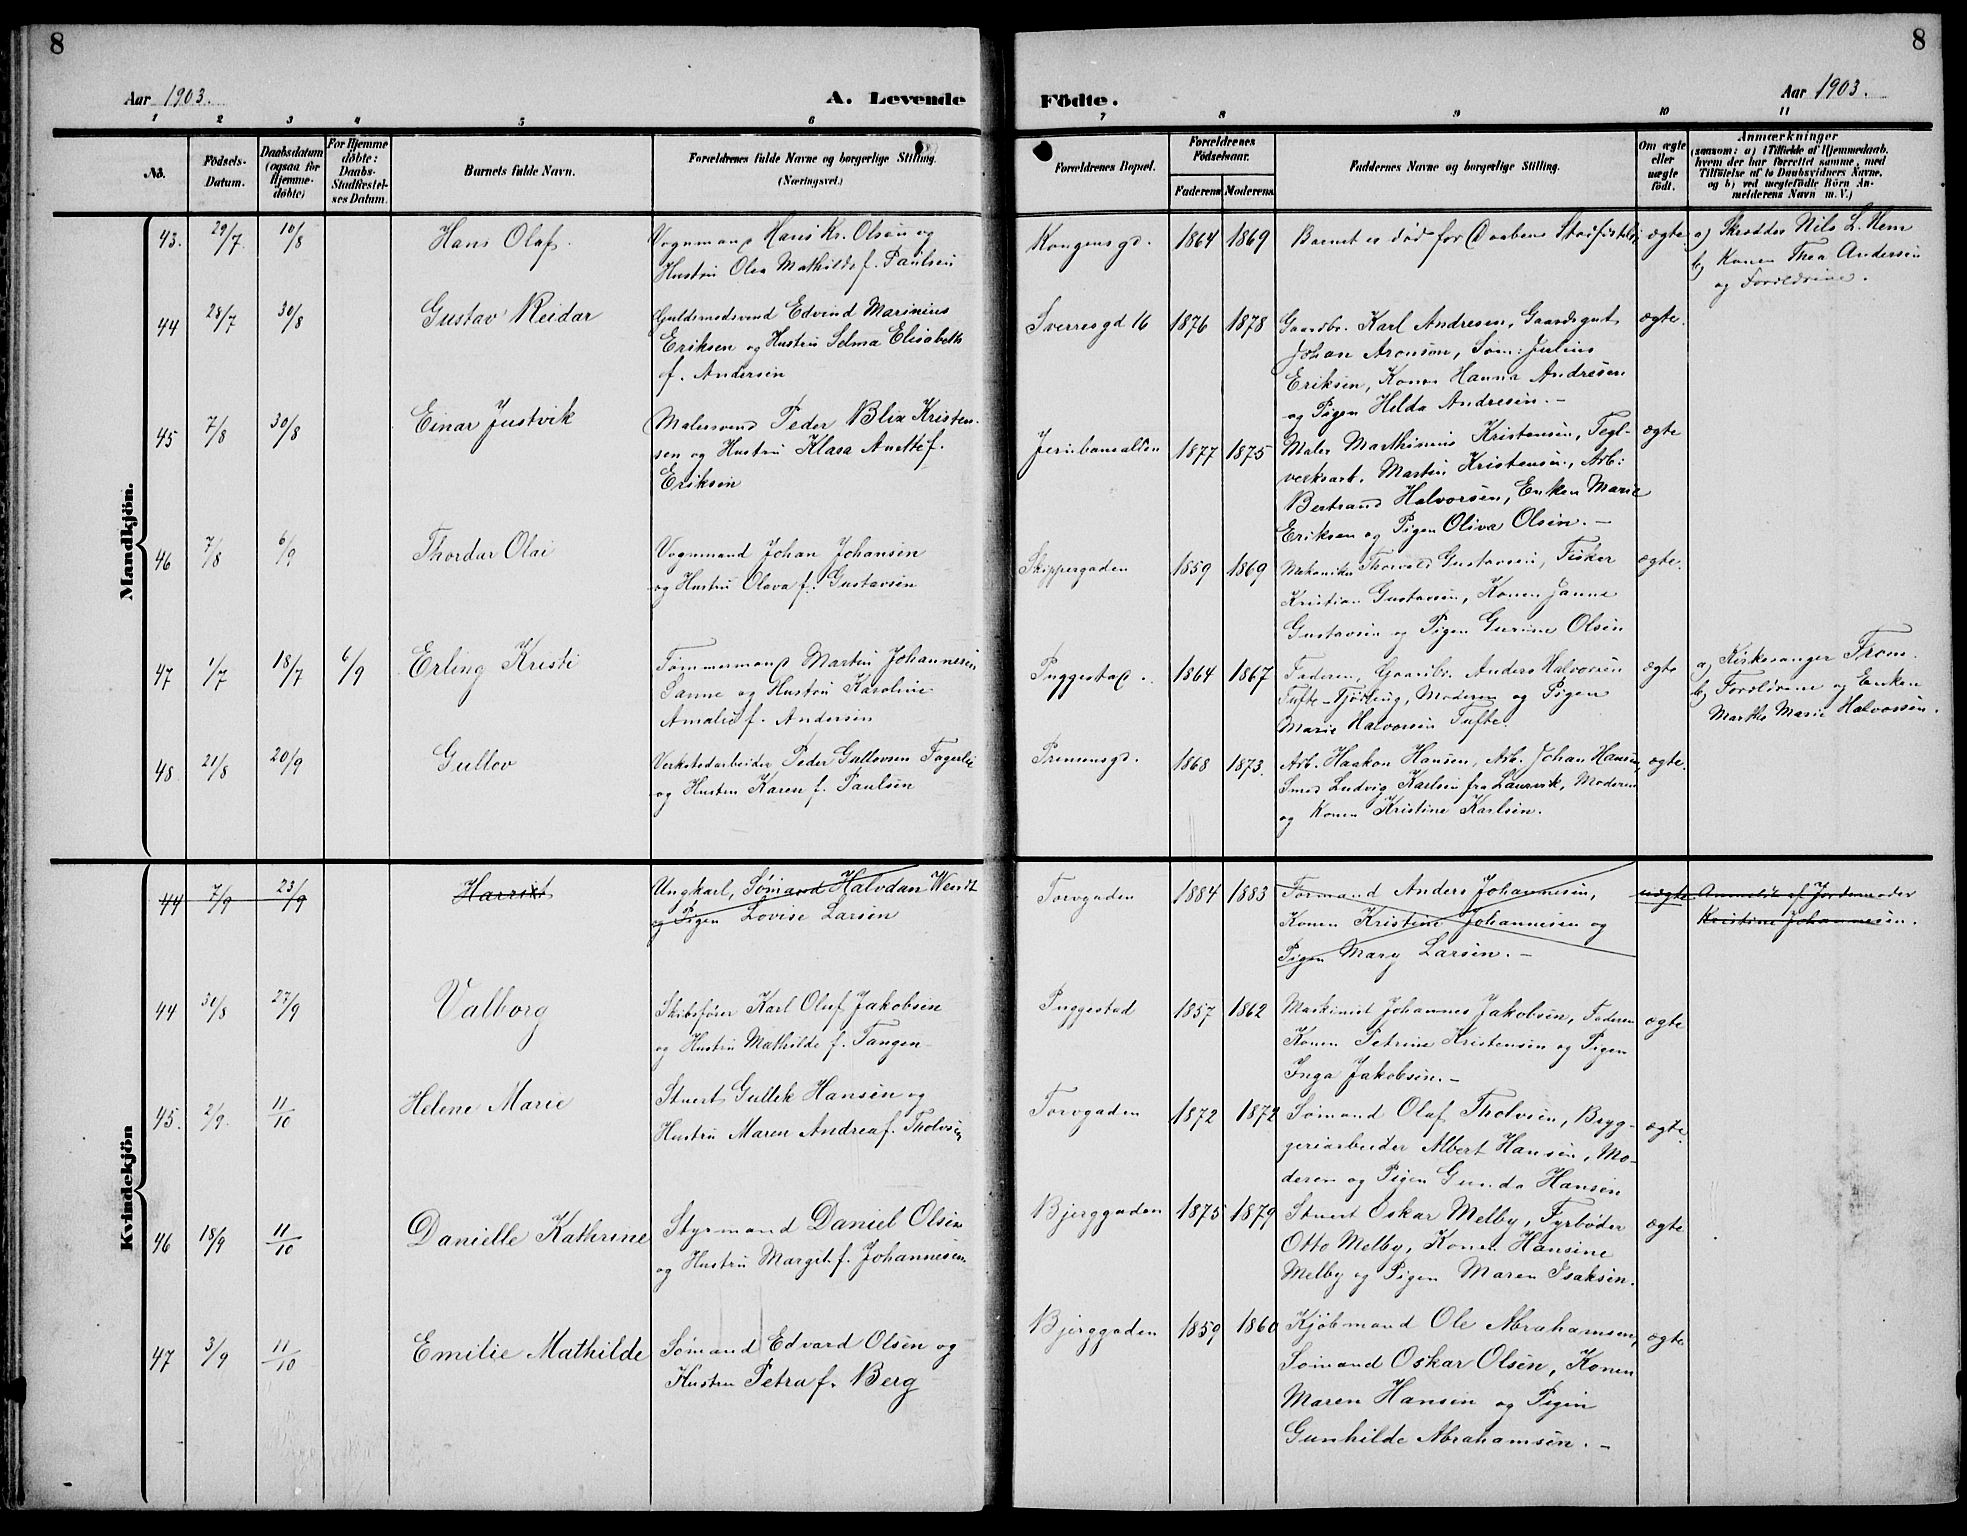 8
Aar 1903.
A. Levende
1 2 3 4 5 6
No.
Födsels-
Datum.
Daabsdatum
(ogsaa for
Hjemme-
døbte)
For Hjemme
døbte:
Daabs-
Stadfæstel-
ses Datum.
Barnets fulde Navn.
Forældrenes fulde Navne og borgerlige Stilling.
(Næringsvei.)
Mandkjön.
43. 29/7 10/8 Hans Olaf. Vognmand Hans Kr. Olsen og
Hustru Olea Mathilde f. Paulsen
44 28/7 30/8 Gustav Reidar Guldsmedsvend Edvind Marinius
Eriksen og Hustru Selma Elisabeth
f. Andersen
45 7/8 30/8 Einar Justvik Malersvend Peder Blix Kristen-
sen og Hustru Klara Anette f.
Eriksen
46 7/8 6/9 Thordar Olai Vognmand Johan Johansen
og Hustru Olava f. Gustavsen
47 1/7 18/7 6/9 Erling Kristi Tømmermand Martin Johannesen
Sanne og Hustru Karoline
Amalie f. Andersen
48. 21/8 20/9 Gullov Verkstedarbeider Peder Gullovsen Fagerli
og Hustru Karen f. Paulsen
Kvindekjön
44 7/9 23/9 Harriet Ungkarl, Sømand Halvdan Wendt
og Pigen Lovise Larsen
44 30/8 27/9 Valborg Skibsfører Karl Oluf Jakobsen
og Hustru Mathilde f. Tangen
45. 2/9. 11/10 Helene Marie Stuert Gullik Hansen og
Hustru Maren Andrea f. Tholvsen
46 18/9 11/10 Danielle Kathrine Styrmand Daniel Olsen
og Hustru Margit f. Johannesen
47 3/9 11/10 Emilie Mathilde Sømand Edvard Olsen og
Hustru Petra f. Berg
8
Födte.
Aar 1903.
7 8 9 10 11
Forældrenes Bopæl.
Forældrenes
Födselsaar.
Faderens Moderens
Faddernes Navne og borgerlige Stilling.
Om ægte
eller
uægte
födt.
Anmærkninger
(saasom: a) i Tilfælde af Hjemmedaab,
hvem der har forrettet samme, med
Tilföielse af to Daabsvidners Navne,
og b) ved uægtefödte Börn An-
melderens Navn m. V.)
Kongensgd. 1864 1869 Barnet er død før Daabens Stadfæstelse ægte a) Skredder Nils L. Hem
b) Konen Thea Andersen
og Forældrene.
Sverresgd 16 1876 1878 Gaardbr. Karl Andresen, Gaardsgut ægte.
Johan Aronsen, Søm: Julius
Eriksen, Konen Hanna Andresen
og Pigen Hilda Andresen.-
Jernbanealléen 1877 1875 Maler Marthinius Kristensen, Tegl- ægte
verksarb. Martin Kristensen, Arb:
Bertrand Halvorsen, Enken Marie
Eriksen og Pigen Oliva Olsen.-
Skippergaden 1859 1869 Mekaniker Thorvald Gustavsen, Fisker ægte.
Kristian Gustavsen, Konen Janne
Gustavsen og Pigen Gurine Olsen
Puggestad. 1864 1867 Faderen, Gaardbr. Anders Halvorsen ægte a) Kirkesanger Trom.
Tufte-Tjølling, Moderen og Pigen b) Forældrene og Enken
Marie Halvorsen Tufte. Marthe Marie Halvorsen.
Prinsensgd. 1868 1873. Arb. Haakon Hansen, Arb. Johan Hansen, ægte.
Smed Ludvig Karlsen fra Laurvik, Moderen
og Konen Kristine Karlsen.
Torvgaden 1884 1883 Formand Anders Johannesen, uægte Anmeldt af Jordemoder
Konen Kristine Johannesen og Kristine Johannesen.
Pigen Mary Larsen.-
Puggestad 1857 1862 Maskinist Johannes Jakobsen, Faderen ægte
Konen Petrine Kristensen og Pigen
Inga Jakobsen.-
Torvgaden 1872 1872 Sømand Olaf Tholvsen, Bryg- ægte.
geriarbeider Albert Hansen, Mo-
deren og Pigen Gunda Hansen
Bjerggaden 1875 1879 Stuert Oskar Melby, Fyrbøder ægte
Otto Melby, Konen Hansine
Melby og Pigen Maren Isaksen.
Bjerggaden 1859 1860 Kjøbmand Ole Abrahamsen, ægte
Sømand Oskar Olsen, Konen
Maren Hansen og Pigen
Gunhilde Abrahamsen.-